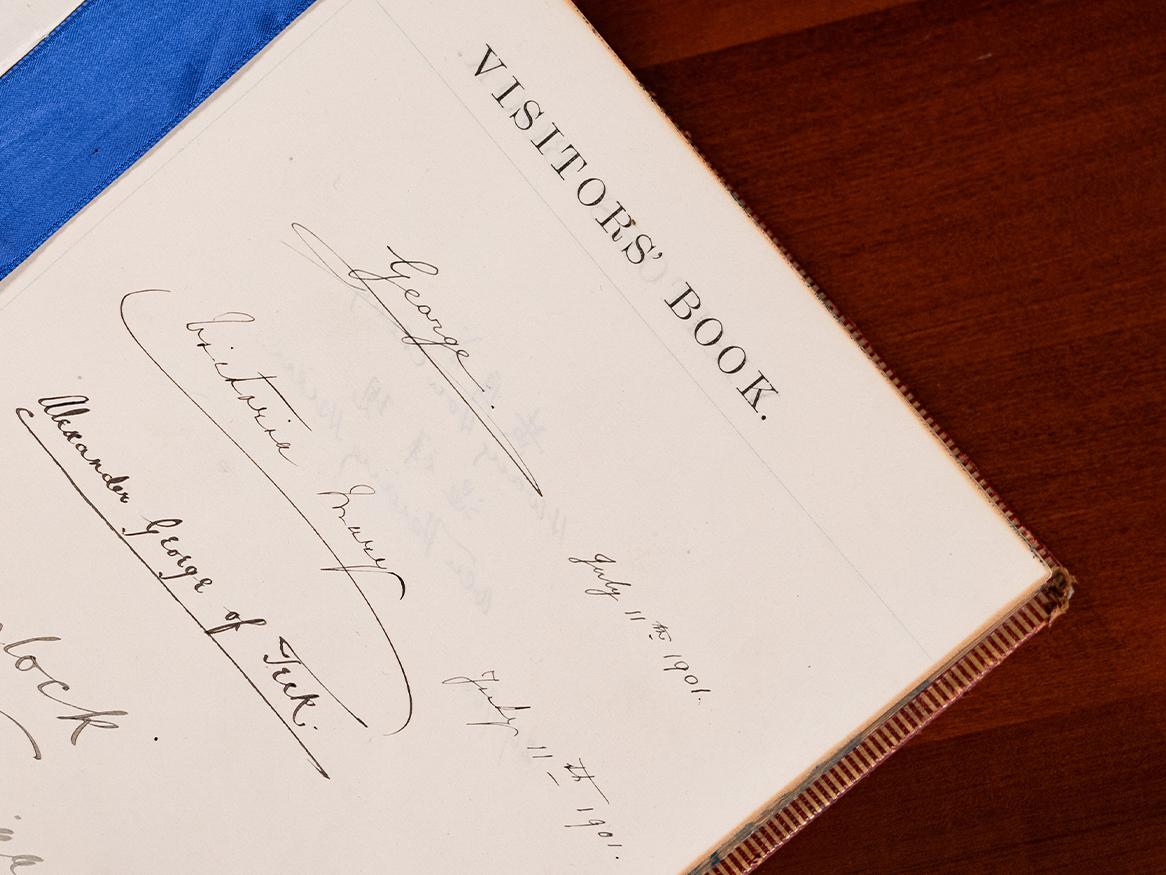 VISITORS' BOOK.
George.
July 11th 1901.
Victoria Mary
July 11th 1901.
Alexander George of Teck.
lock